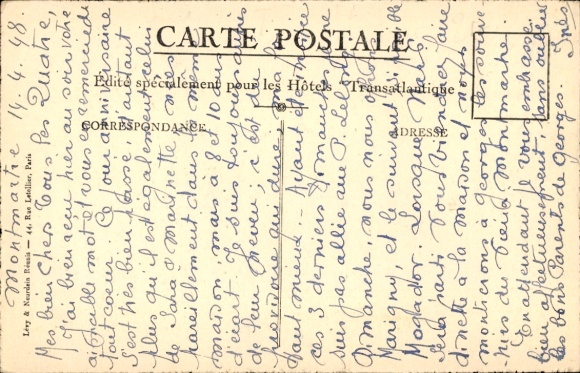 CARTE POSTALE
Edité spécialement pour les Hôtels Transatlantique
CORRESPONDANCE
ADRESSE
Lévy & Neurdein Réunis — 44, Rue Letellier, Paris
Montmartre 14.4.48
Mes bien chers Tous les Quatre,
J'ai bien reçu hier au soir votre
aimable mot et vous en remercie de
tout cœur. Ce jour anniversaire
s'est très bien passé, d'autant
plus qu'il est également celui
de
pareillement dans la même
maison mais à 8 et 10 ans
d'écart. Je suis toujours
de leur Neveu ; c'est du
provisoire qui dure ; ma foi
tant mieux. Ayant été prise
ces 3 derniers Dimanches je ne
suis pas allée rue P. Lelong
Dimanche, nous nous
Marigny, et le suivant
Mogador. Lorsque
sera parti vous viendrez faire
dînette à la maison et nous
montrerons à Georges les souve-
nirs du Vieux Montmartre
En attendant je vous embrasse
bien affectueusement sans oublier
les bons Parents de Georges.